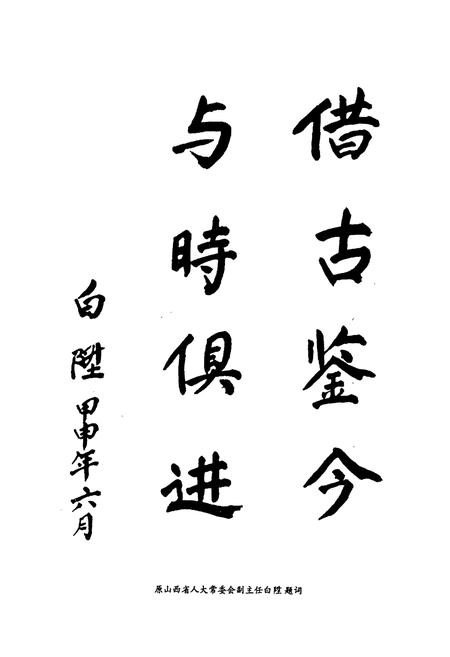 借古鉴今
与時俱进
白陞 甲申年六月
原山西省人大常委会副主任白陞 题词